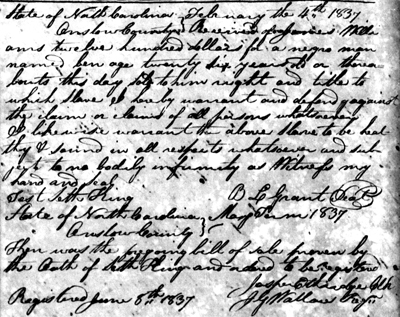 State of North Carolina February the 4th 1837
Onslow County Received of Wille
ams twelve hundred dollars for a negro man
named ben age twenty six years old or there
bouts this day sold to him right and title to
which Slave I hereby warrant and defend against
the claim or claims of all persons whatsoever
I likewise warrant the above slave to be heal
thy & sound in all respects whatsoever and sub
ject to no bodily infirmity as Witness my
hand and seal
Test Seth King B L Grant Seal
State of North Carolina } May Term 1837
Onslow County
Then was the bill of sale proven by
the Oath of Seth King and ordered to be registered
Jasper Etheridge Clk
Registered June 8th 1837 J G Wallace